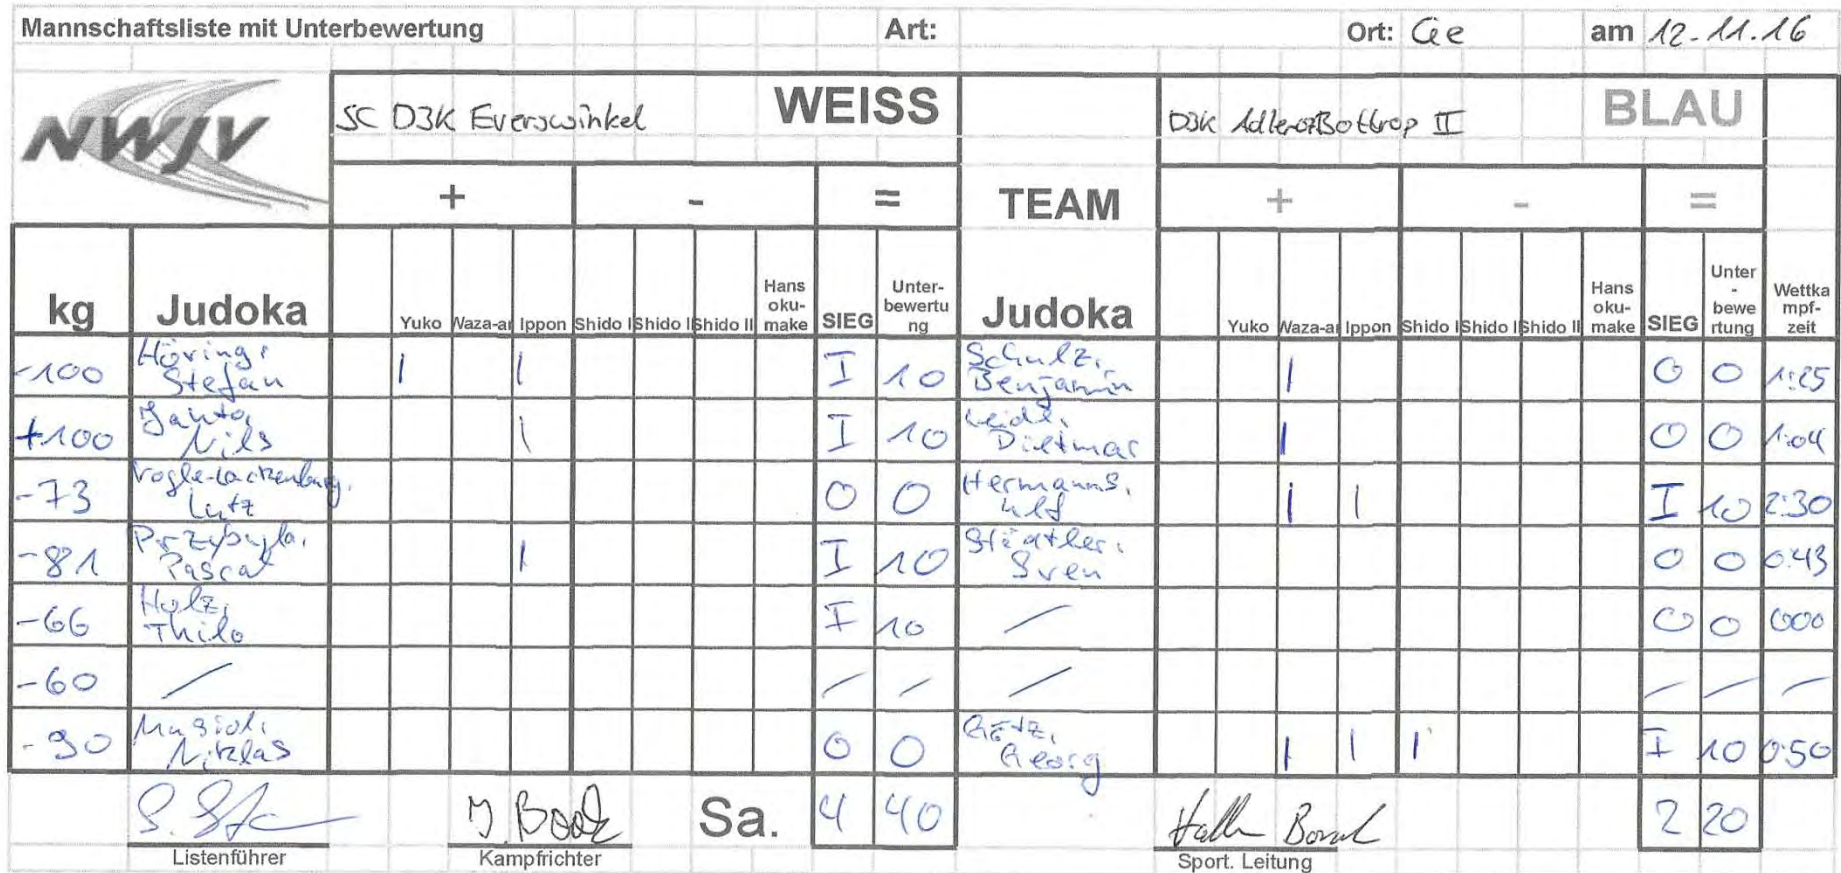 Mannschaftsliste mit Unterbewertung Art: Ort: am 12.11.16
NWJV SC DJK Everswinkel WEISS DJK Adler Bottrop II BLAU
+ - = TEAM + - =
kg Judoka Yuko Waza-ar Ippon Shido I Shido II Shido II Hans oku- make SIEG Unter- bewertu ng Judoka Yuko Waza-ar Ippon Shido I Shido II Shido II Hans oku- make SIEG Unter - bewe rtung Wettka mpf- zeit
-100 Höring, Stefan | | I 10 Schulz, Benjamin | 0 0 1:25
+100 Janto, Nils | I 10 Leidl, Dietmar | 0 0 1:04
-73 Lutz 0 0 Hermanns, Ulf | | I 10 2:30
-81 Przybyla, Pascal | I 10 Sven 0 0 0:43
-66 Holz, Thilo I 10 / 0 0 000
-60 / / / / / / /
-90 Musiol, Niklas 0 0 Götz, Georg | | | I 10 0:50
Sa. 4 40 2 20
Listenführer Kampfrichter Sport. Leitung